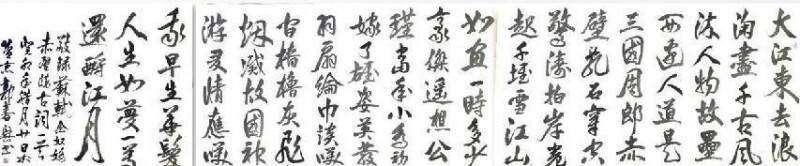 大江東去浪
淘盡千古風
流人物故壘
西邊人道是
三國周郎赤
壁亂石穿空
驚濤拍岸卷
起千堆雪江山
如畫一時多少
豪傑遥想公
瑾當年小喬初
嫁了雄姿英發
羽扇綸巾談笑
間檣櫓灰飛
烟滅故國神
游多情應笑
我早生華髮
人生如夢一尊
還酹江月
蘇軾念奴嬌
赤壁懷古詞一首
月廿日